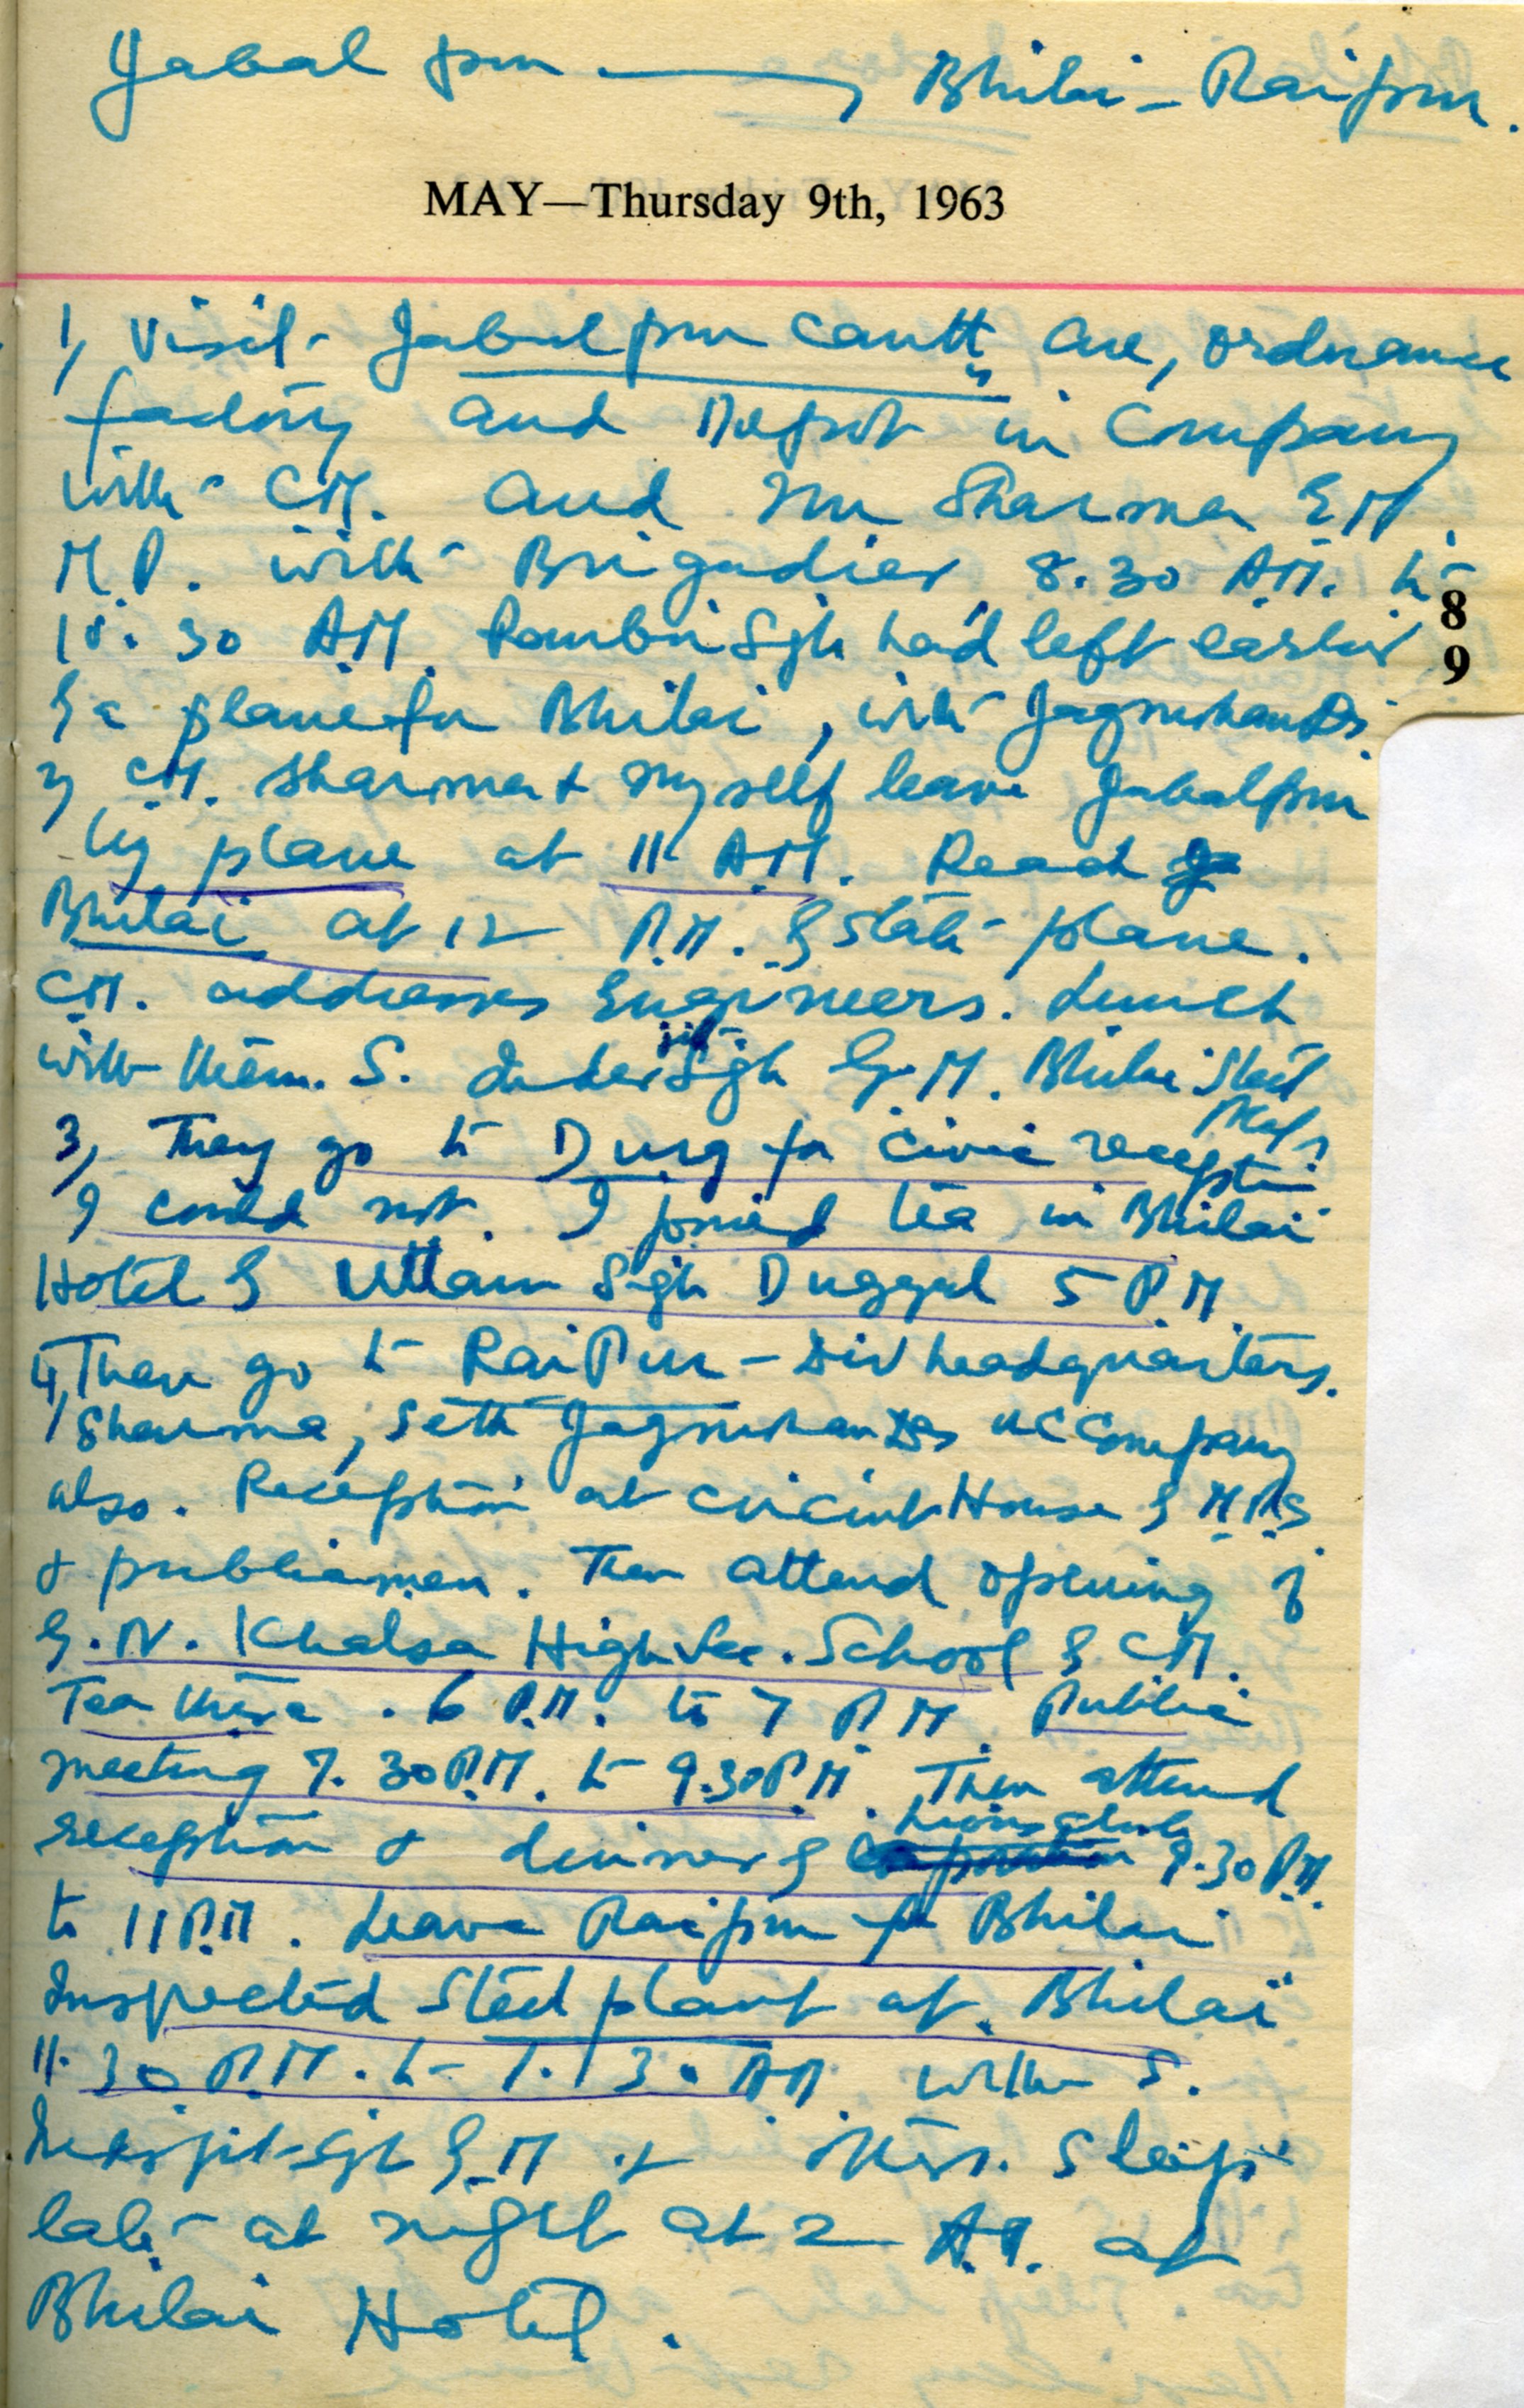 Jabalpur → Bhilai - Raipur.
MAY—Thursday 9th, 1963
1, Visit Jabalpur Cantt, Are, ordnance
factory and Depot in Company
with C.M. and Mr Sharma E M
M.P. with Brigadier 8.30 A.M. to
10.30 A.M. Rambir Sgh had left earlier
8
9
by a plane for Bhilai, with Jagmohan Ds.
2, C.M. Sharma & myself leave Jabalpur
by plane at 11 A.M. Reach
Bhilai at 12 P.M. by State plane.
C.M. addresses Engineers. Lunch
with them. S. Inderjit Sgh G.M. Bhilai Steel
3, They go to Durg for civic reception
I could not. I joined tea in Bhilai
Hotel by Uttam Sgh Duggal 5 P.M.
4, Then go to RaiPur - Div headquarters.
Sharma, Seth Jagmohan Das accompany
also. Reception at circuit House by M.P.s
& publicmen. Then attend opening of
G.N. Khalsa High Sec. School by C.M.
Tea there. 6 P.M. to 7 P.M. Public
meeting 7.30 P.M. to 9.30 P.M. Then attend
reception & dinner by Lions Club 9.30 P.M.
to 11 P.M. Leave Raipur for Bhilai
Inspected Steel plant at Bhilai
11.30 P.M. to 1.30 A.M. with S.
Inderjit Sgh G.M & others. Sleep
late at night at 2 A.M. at
Bhilai Hotel.